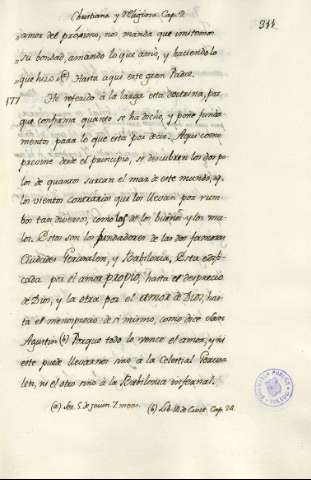 Christiana y Religiosa Cap. 9.
344
amor del proximo, nos manda que imitemos
su bondad, amando lo que amó, y haciendo lo
que hizo (a) Hasta aqui este gran Padre.
177 He referido á la larga esta doctrina, por
que confirma quanto se ha dicho, y pone funda-
mentos para lo que esta por decir. Aqui como
presume desde el principio, se descubren los dos po
los de quantos surcan el mar de este mundo, y
los vientos contrarios que los llevan por rum
bos tan diversos, como los de los buenos y los ma
los. Estos son los fundadores de las dos famosas
Ciudades Jerusalem, y Babilonia, Esta edifi
cada por el amor propio, hasta el desprecio
de Dios, y la otra por el amor de Dios, has
ta el menosprecio de si mismo, como dice San
Agustin (b) Porque todo lo vence el amor, y ni
este puede llevarnos sino á la Celestial Jerusa
len, ni el otro sino á la Babilonia infernal.
(a) Ser. 5 de Jejun. 7. mens. (b) Lib. 14 de Civit. Cap. 28.
BIBLIOTECA PUBLICA TOLEDO